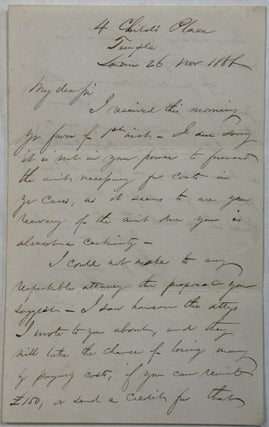 4 Child's Place
Temple
London 26 Nov 1866
My dear Sir
I received this morning
yr favor of 1st inst – I am sorry
it is not in your power to forward
the amt necessary for costs in
yr cases, as it seems to me your
recovery of the amt due you is
almost a certainty –
I could not make to any
respectable attorney the proposal you
suggest – I saw however the attys
I wrote to you about, and they
will take the chance of losing money
by paying costs, if you can remit
£150, or send a credit for that